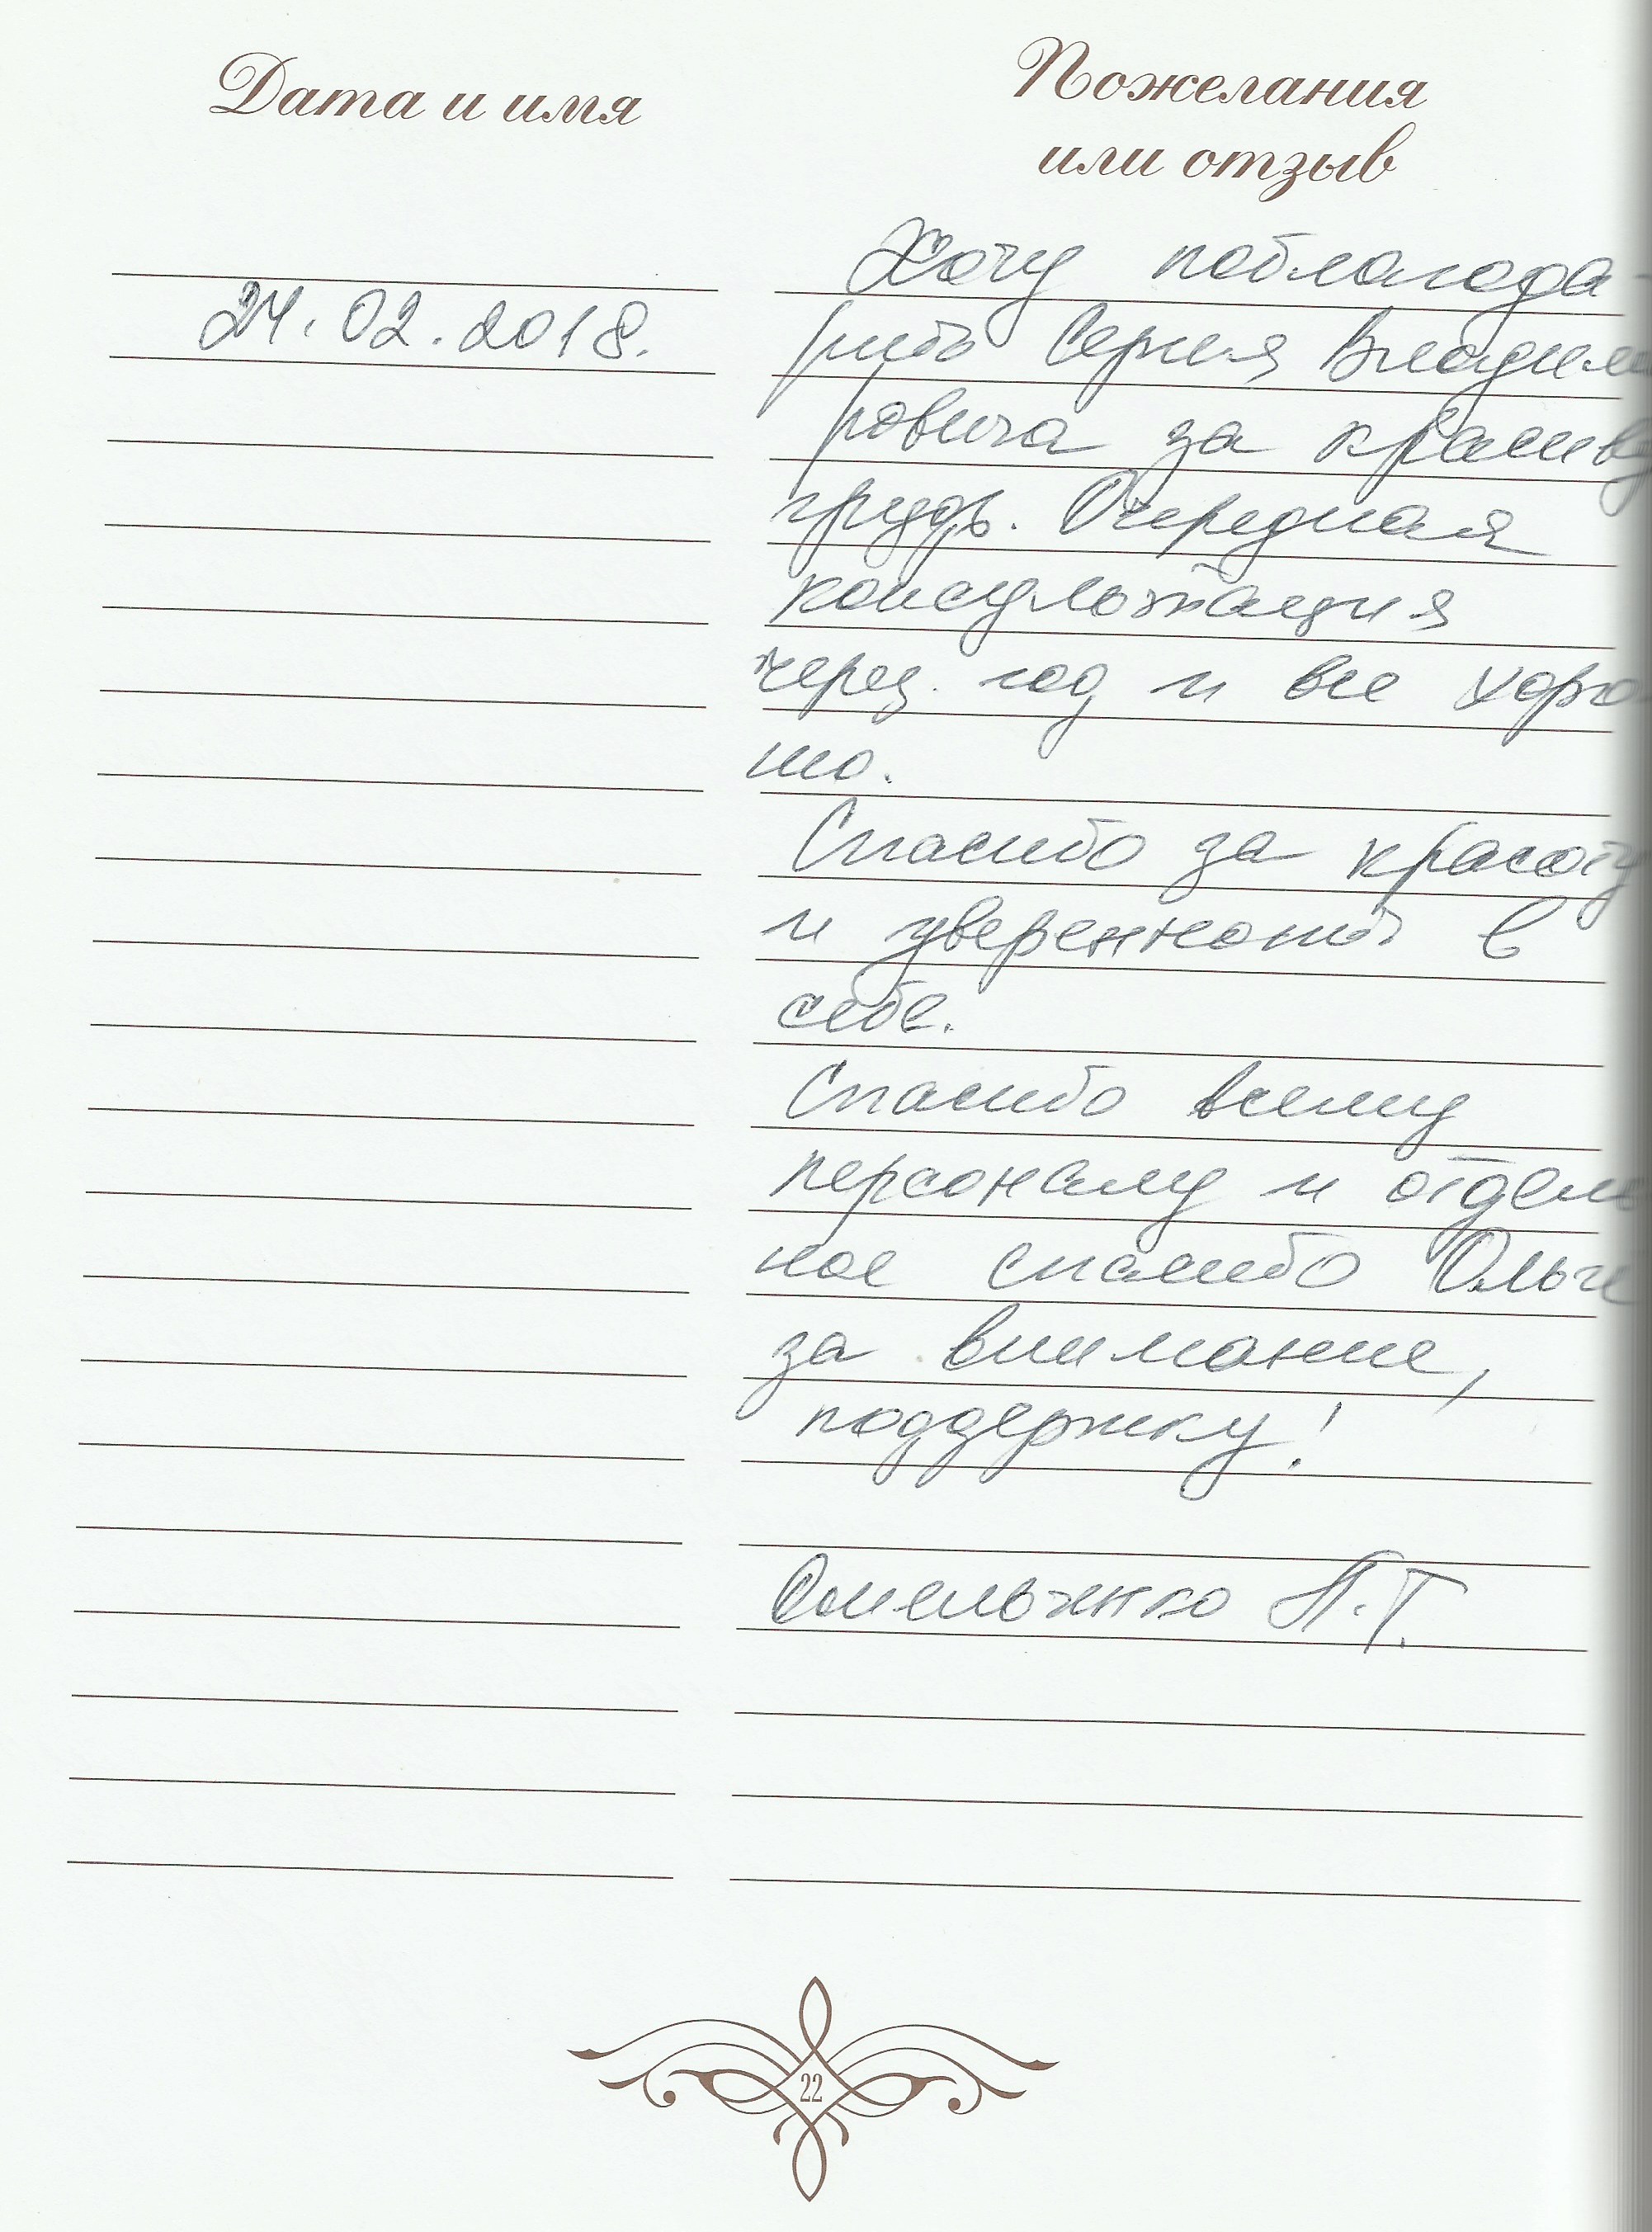 Дата и имя
Пожелания
или отзыв
24.02.2018.
Хочу поблагода-
рить Сергея Владими
ровича за красиву
грудь. Очередная
консультация
через год и все хоро
шо.
Спасибо за красоту
и уверенность в
себе.
Спасибо всему
персоналу и отдель
ное спасибо Ольге
за внимание,
поддержку!
Омельченко П.Т.
22